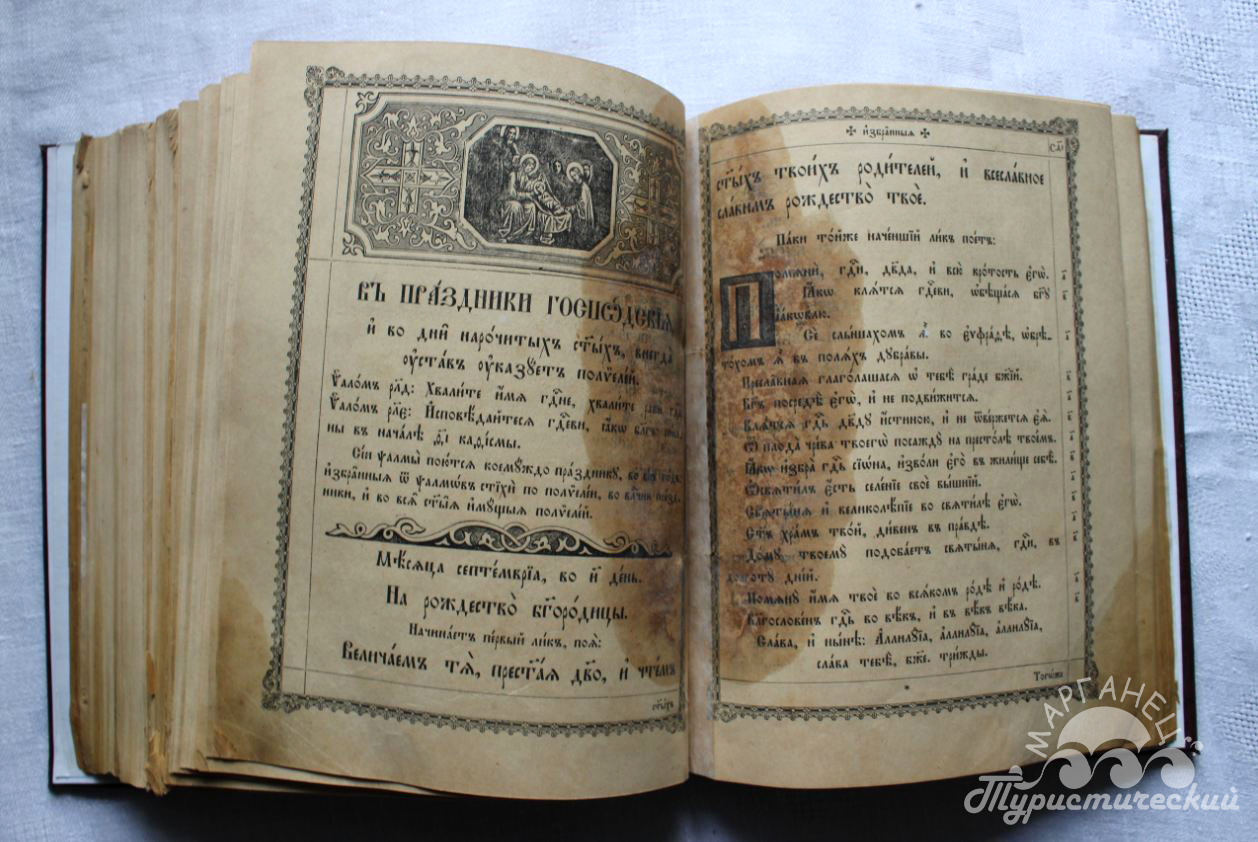 въ пра́здники госпѡ́дскїѧ
и҆ во дни̑ нарочи́тыхъ ст҃ы́хъ, внегда̀
ᲂу҆ста́въ ᲂу҆ка́зꙋетъ полѷеле́й.
Ѱало́мъ рл҃д: Хвали́те и҆́мѧ гдⷭ҇не, хвали́те раби̑
Ѱало́мъ рл҃є: И҆сповѣ́дайтесѧ гдⷭ҇еви, ꙗ҆́кѡ бл҃гъ:
ны въ нача́лѣ а҃і каѳі́смы.
Сїѝ ѱалмы̀ пою́тсѧ коемꙋ́ждо пра́здникꙋ, во всѐ
и҆збра̑нныѧ ѿ ѱалмѡ́въ стїхѝ по полѷеле́и, во
ники, и҆ во всѧ̑ ст҃ы̑ѧ и҆мꙋ́щыѧ полѷеле́й.
Мѣ́сѧца септе́мврїа, во и҃ де́нь.
На рождество̀ бг҃оро́дицы.
Начина́етъ пе́рвый ли́къ, поѧ̀:
Велича́емъ тѧ̀, прест҃а́ѧ дв҃о, и҆ чте́мъ
ст҃ы́хъ
и҆збра̑нныѧ
ст҃ы́хъ твои́хъ роди́телей, и҆ всесла́вное
сла́вимъ рождество̀ твоѐ.
Па́ки то́йже наче́ншїй ли́къ пое́тъ:
Помѧнѝ, гдⷭ҇и, дв҃да, и҆ всю̀ кро́тость є҆гѡ̀.
Ꙗ҆́кѡ клѧ́тсѧ гдⷭ҇еви, ѡ҆бѣща́сѧ бг҃ꙋ
і҆а́кѡвлю.
Сѐ слы́шахомъ ѧ҆̀ во є҆ѵфра́дѣ, ѡ҆брѣ-
то́хомъ ѧ҆̀ въ полѧ́хъ дꙋбра́вы.
Пресла̑внаѧ глаго́лашасѧ ѡ҆ тебѣ̀ гра́де бж҃їй.
Бг҃ъ посредѣ̀ є҆гѡ̀, и҆ не подви́житсѧ.
Клѧ́тсѧ гдⷭ҇ь дв҃дꙋ и҆́стиною, и҆ не ѿве́ржетсѧ є҆ѧ̀.
Ѿ плода̀ чре́ва твоегѡ̀ посаждꙋ̀ на престо́лѣ твое́мъ.
Ꙗ҆́кѡ и҆збра̀ гдⷭ҇ь сїѡ́на, и҆зво́ли є҆го̀ въ жили́ще себѣ̀.
Ѡ҆свѧти́лъ є҆́сть селе́нїе своѐ вы́шнїй.
Свѧты́нѧ и҆ великолѣ́пїе во свѧти́лѣ є҆гѡ̀.
Ст҃ъ хра́мъ тво́й, ди́венъ въ пра́вдѣ.
До́мꙋ твоемꙋ̀ подоба́етъ свѧты́нѧ, гдⷭ҇и, въ
долготꙋ̀ дні́й.
Помѧнꙋ̀ и҆́мѧ твоѐ во всѧ́комъ ро́дѣ и҆ ро́дѣ.
Благослове́нъ гдⷭ҇ь во вѣ́къ, и҆ въ вѣ́къ вѣ́ка.
Сла́ва, и҆ ны́нѣ: А҆ллилꙋ́їа, а҆ллилꙋ́їа, а҆ллилꙋ́їа,
сла́ва тебѣ̀, бж҃е. три́жды.
МАРГАНЕЦ
Туристический